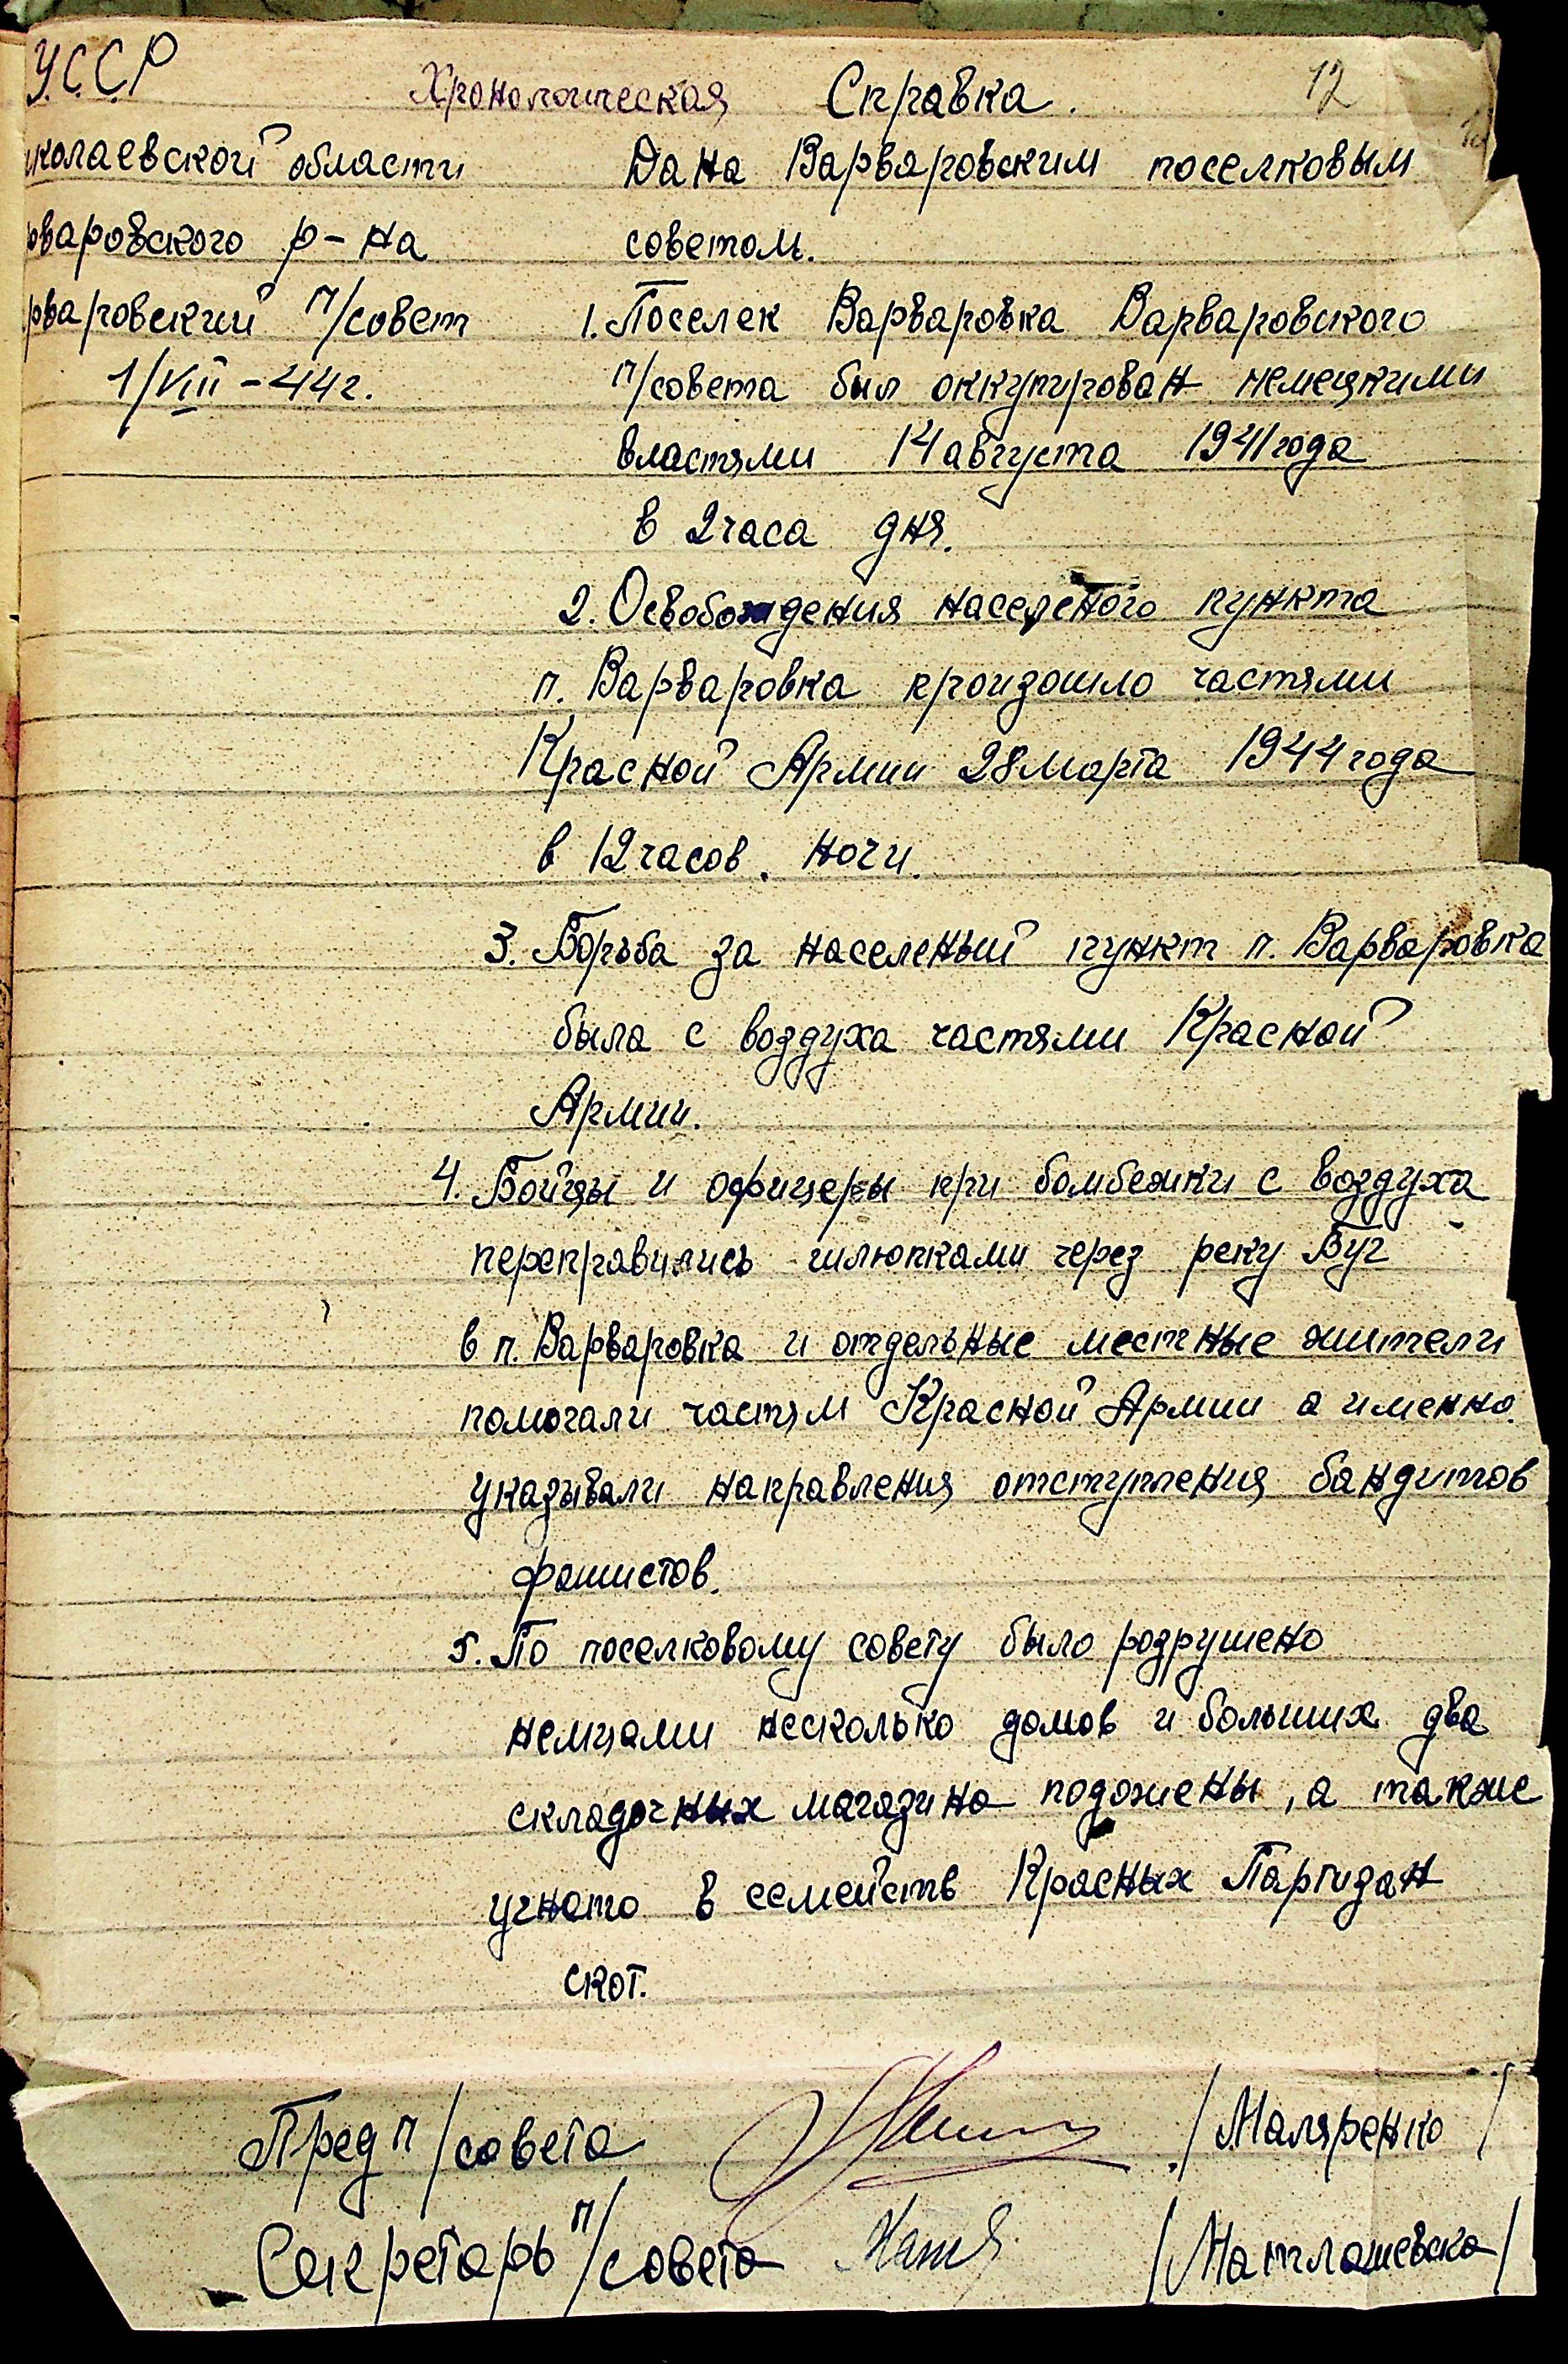 УССР
Хронологическая Справка. 12
иколаевской области
рваровского р-на
рваровский п/совет
1/VIII-44г.
Дана Варваровским поселковым
советом.
1. Поселек Варваровка Варваровского
п/совета был оккупирован немецкими
властями 14 августа 1941 года
в 2 часа дня.
2. Освобождения населеного пункта
п. Варваровка произошло частями
Красной Армии 28 марта 1944 года
в 12 часов. ночи.
3. Борьба за населеный пункт п. Варваровка
была с воздуха частями Красной
Армии.
4. Бойцы и офицеры при бомбежки с воздуха
переправились шлюпками через реку Буг
в п. Варваровка и отдельные местные жители
помогали частям Красной Армии а именно.
указывали направления отступления бандитов
фашистов.
5. По поселковому совету было розрушено
немцами несколько домов и больших два
складочных магазина подожены, а также
угнато в семейств Красных Партизан
скот.
Пред п/совета /Маляренко/
Секретарь п/совета /Матлашевска/